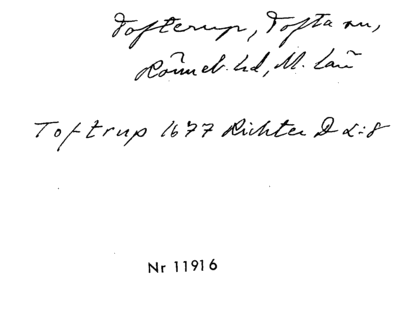 Tofterup, Tofta sn,
Rönneb. hd, M. län
Toftrup 1677 Richter D α:8
Nr 11916